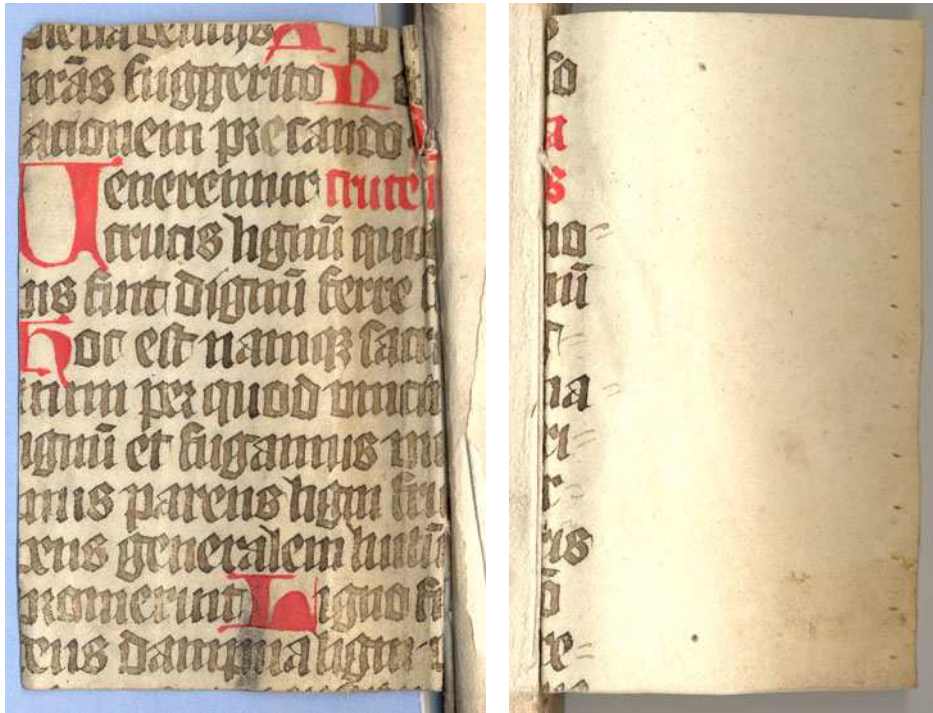 trās suggerito N
ationem precando
Ueneremur crucem
crucis lignū quo
nis sunt dignū ferre s
Hoc est namqꝫ sacra
per quod vincim
ignū et fugamus
mus parens ligni fru
rens generalem
promerunt Ligno fr
rens dampna ligni
so
a
s
no=
nū
na=
ri=
r=
ris
re=